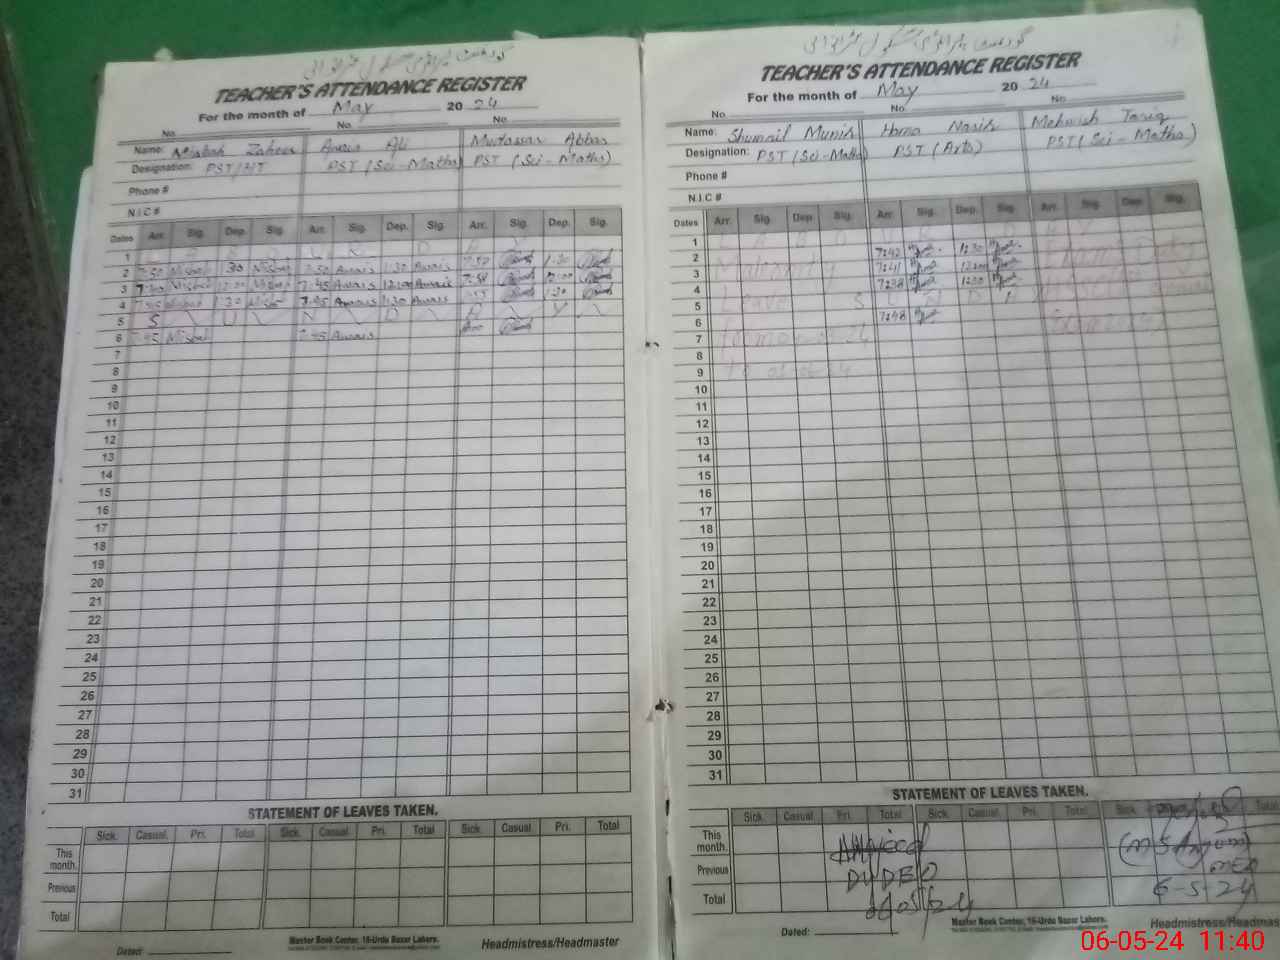 گورنمنٹ پرائمری سکول
TEACHER'S ATTENDANCE REGISTER
For the month of May 2024
No. No. No.
Name: Misbah Zaheer Awais Ali Mudassar Abbas
Designation: PST/HT PST (Sci-Maths) PST (Sci-Maths)
Phone #
N.I.C #
Dates Arr. Sig. Dep. Sig. Arr. Sig. Dep. Sig. Arr. Sig. Dep. Sig.
1 L A B O U R D A Y
2 7:50 Misbah 1:30 Misbah 7:50 Awais 1:30 Awais 7:50 1:30
3 7:50 Misbah 12:00 Misbah 7:45 Awais 12:00 Awais 7:50 12:00
4 7:45 Misbah 1:30 Misbah 7:45 Awais 1:30 Awais 1:30
5 S U N D A Y
6 7:45 Misbah 7:45 Awais
7
8
9
10
11
12
13
14
15
16
17
18
19
20
21
22
23
24
25
26
27
28
29
30
31
STATEMENT OF LEAVES TAKEN.
Sick. Casual. Pri. Total Sick. Casual Pri. Total Sick. Casual Pri. Total
This month.
Previous
Total
Master Book Center, 16-Urdu Bazar Lahore.
Dated: Headmistress/Headmaster
گورنمنٹ پرائمری سکول
TEACHER'S ATTENDANCE REGISTER
For the month of May 2024
No. No. No.
Name: Shumail Munir Homa Nasir Mehwish Tariq
Designation: PST (Sci-Maths) PST (Arts) PST (Sci-Maths)
Phone #
N.I.C #
Dates Arr. Sig. Dep. Sig. Arr. Sig. Dep. Sig. Arr. Sig. Dep. Sig.
1 L A B O U R D A Y
2 Maternity 7:42 1:30
3 7:41 12:00
4 Leave 7:38 1:30
5 S U N D
6 7:48
7
8 To
9
10
11
12
13
14
15
16
17
18
19
20
21
22
23
24
25
26
27
28
29
30
31
STATEMENT OF LEAVES TAKEN.
Sick. Casual Pri. Total Sick. Casual Pri. Total Sick. Total
This month.
Previous
Total
DyDEO
06/05/24
6-5-24
Master Book Center, 16-Urdu Bazar Lahore.
Dated: Headmistress/Headmas
06-05-24 11:40